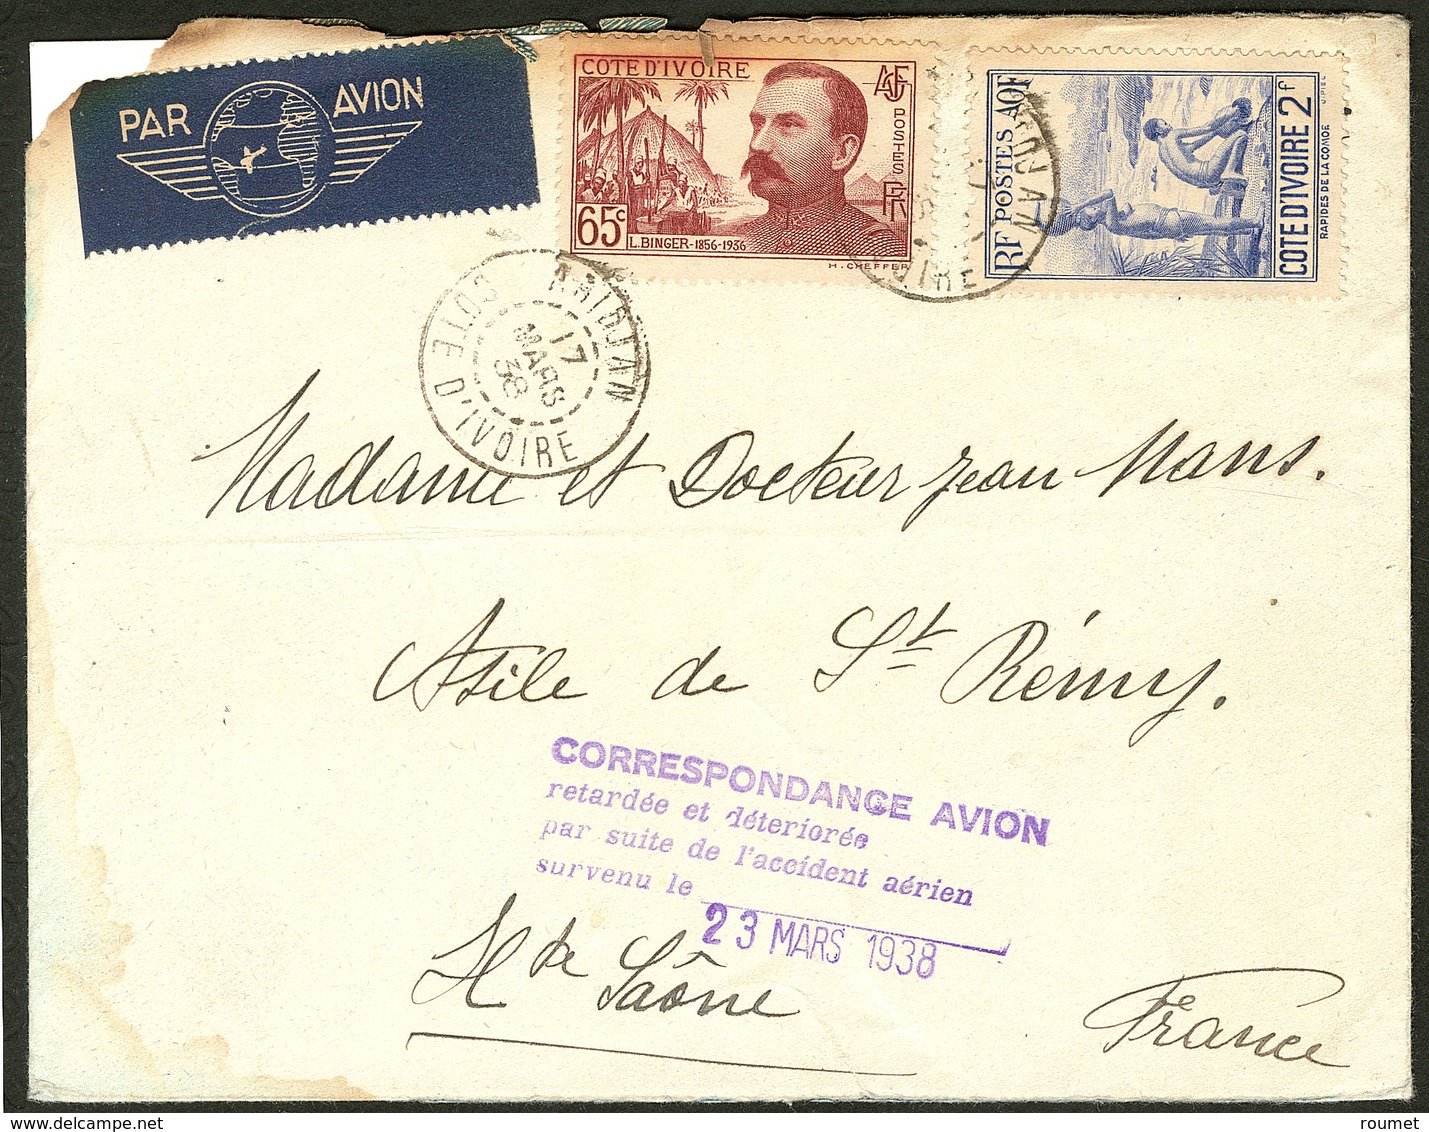 PAR AVION
COTE D'IVOIRE
AOF
POSTES
RF
65c
L. BINGER-1856-1936
H. CHEFFER
RF POSTES AOF
COTE D'IVOIRE 2f
RAPIDES DE LA COMOE
ABIDJAN
17
MARS
38
COTE D'IVOIRE
Madame et Docteur Jean Mans.
Asile de St Rémy.
CORRESPONDANCE AVION
retardée et détériorée
par suite de l'accident aérien
survenu le
23 MARS 1938
Hte Saône
France
roumet - delcampe.net